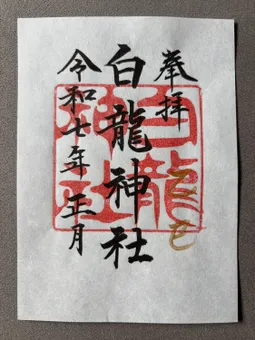 奉拝
乙巳
白龍神社
白龍神社
令和七年正月